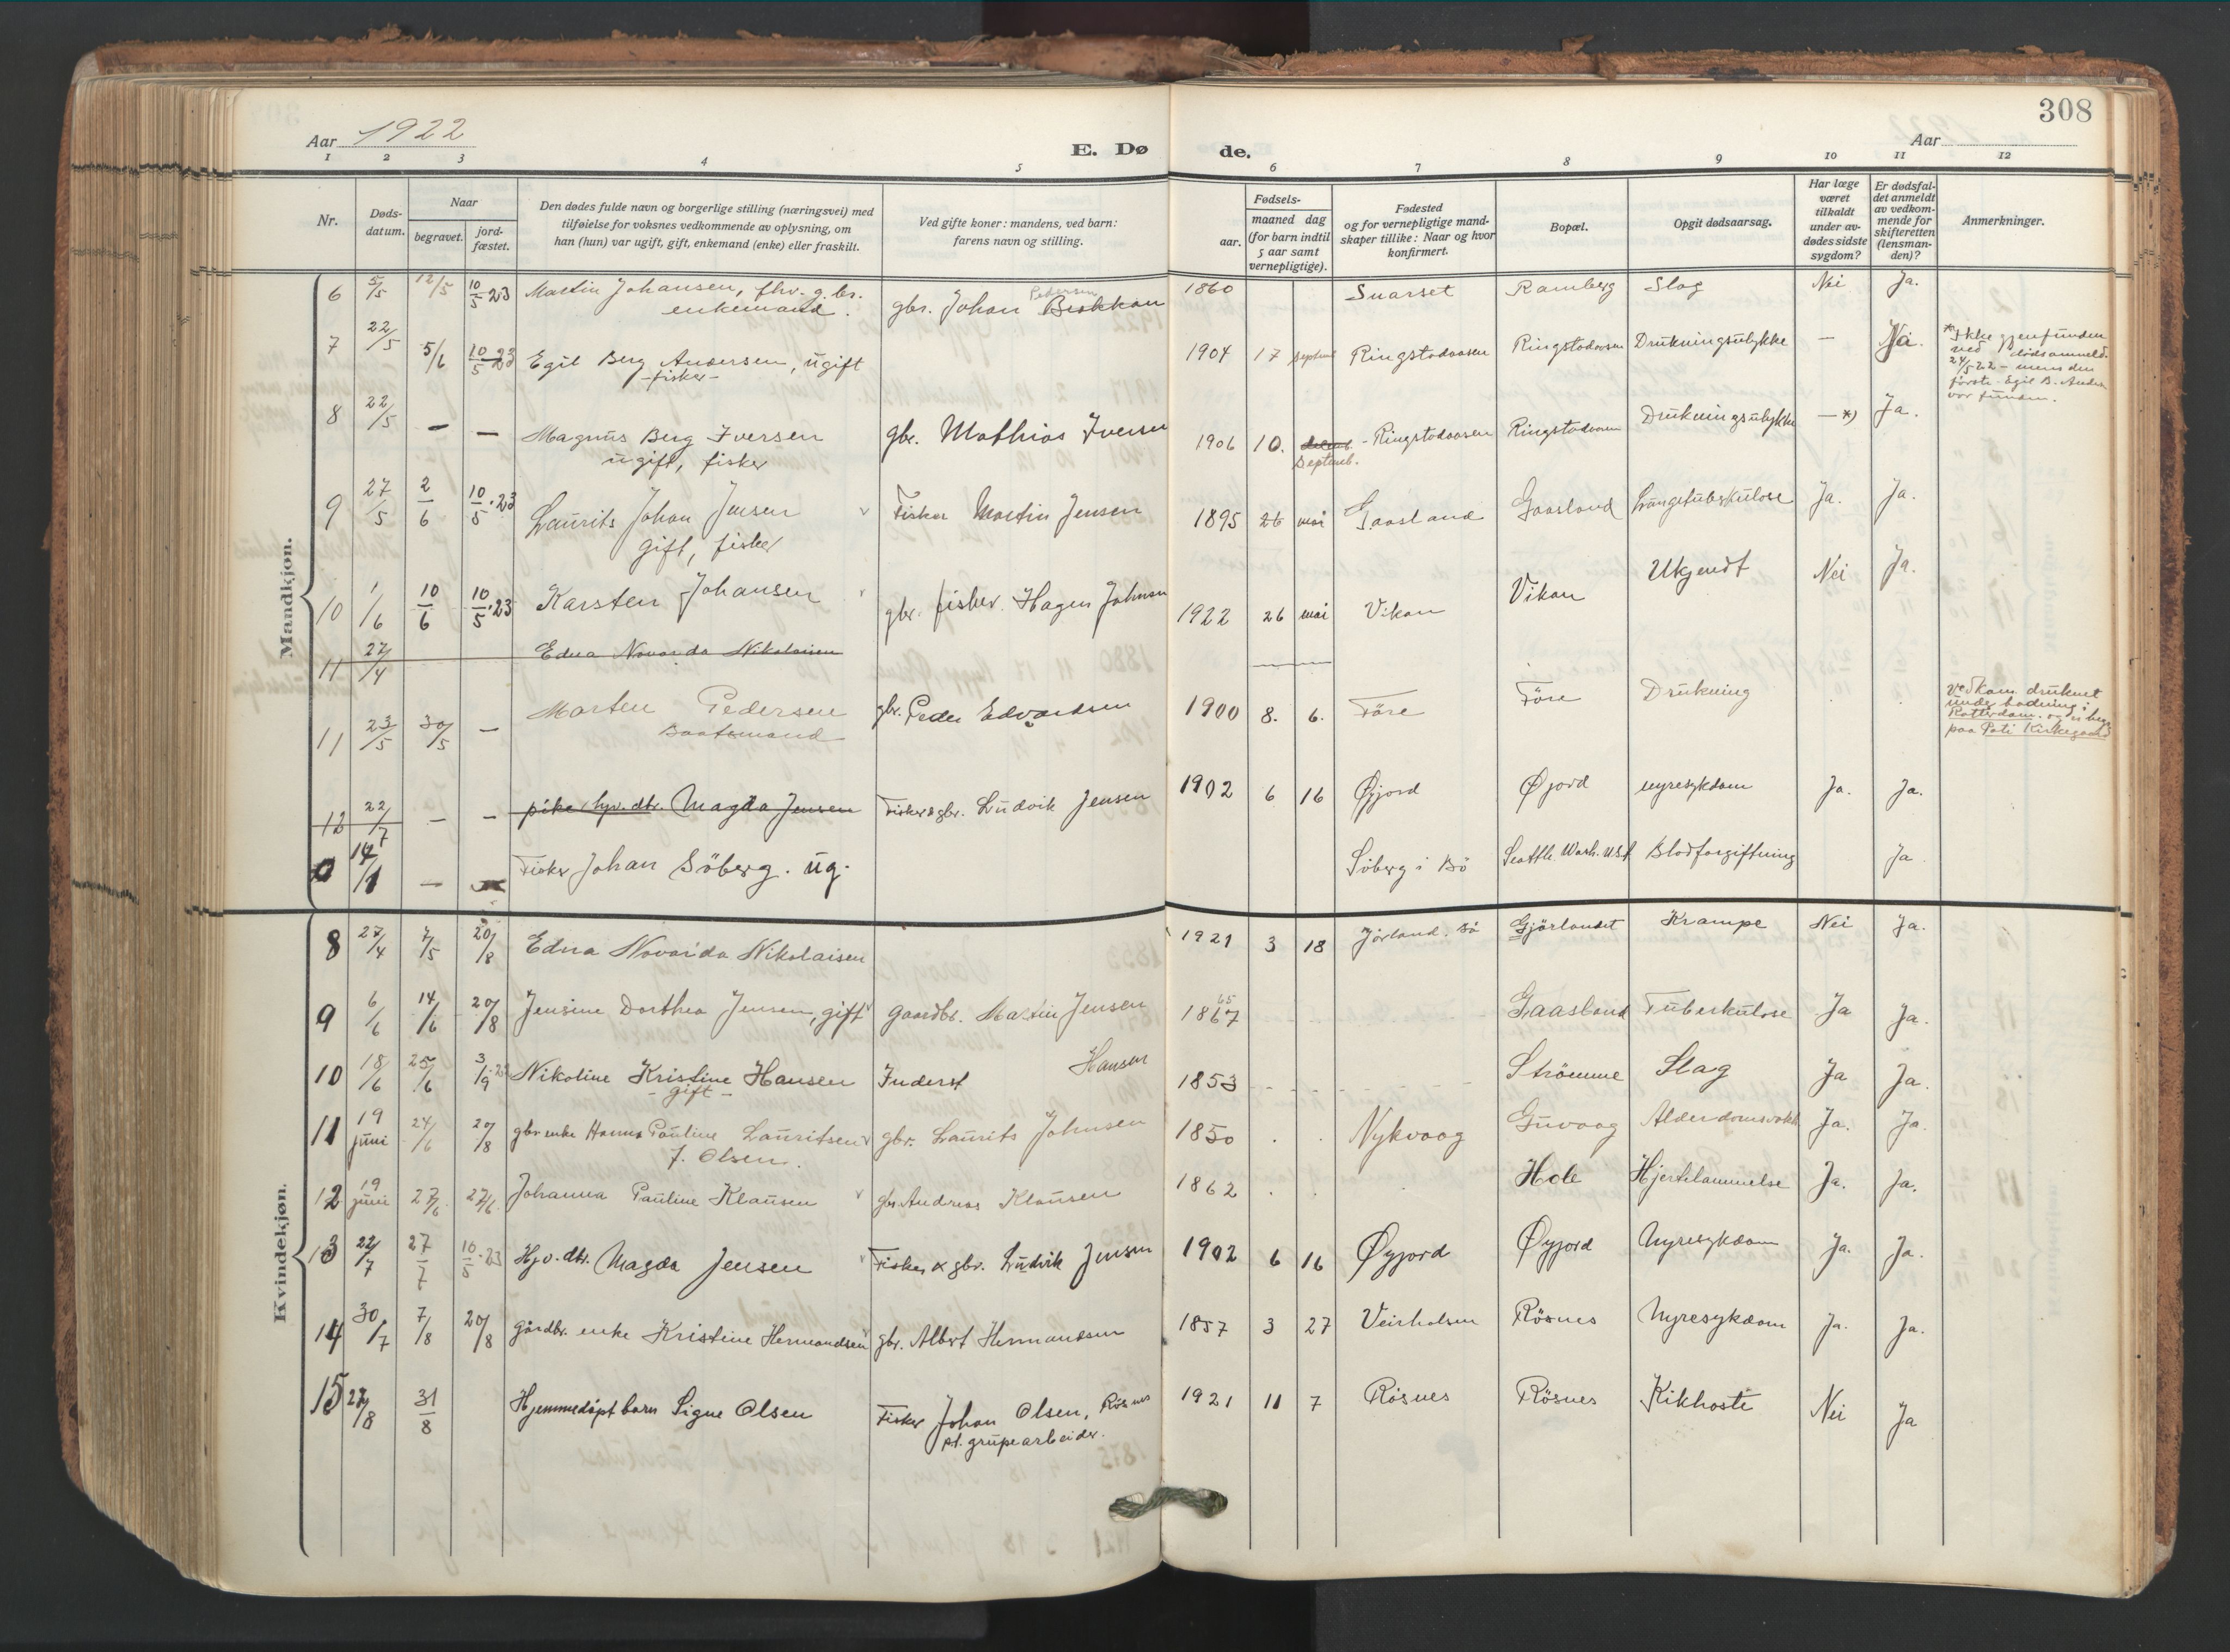 308
Aar 1922
E. Dø
de.
Aar
1 2 3 4 5 6 7 8 9 10 11 12
Nr.
Døds-
datum.
Naar
begravet.
jord-
fæstet.
Den dødes fulde navn og borgerlige stilling (næringsvei) med
tilføielse for voksnes vedkommende av oplysning, om
han (hun) var ugift, gift, enkemand (enke) eller fraskilt.
Ved gifte koner: mandens, ved barn:
farens navn og stilling.
Fødsels-
aar.
maaned dag
(for barn indtil
5 aar samt
vernepligtige).
Fødested
og for vernepligtige mand-
skaper tillike: Naar og hvor
konfirmert.
Bopæl.
Opgit dødsaarsag.
Har læge
været
tilkaldt
under av-
dødes sidste
sygdom?
Er dødsfal-
det anmeldt
av vedkom-
mende for
skifteretten
(lensman-
den)?
Anmerkninger.
Mandkjøn.
6 5/5 12/5 10/5 23 Martin Johansen, fhv. g.br. gbr. Johan Pedersen 1860 Snarset Ramberg Slag Nei Ja.
enkemand.
7 22/5 5/6 10/5 23 Egil Berg Andersen, ugift 1904 17 Ringstadaasen Ringstadaasen Drukningsulykke —
- fisker -
*Ikke gjenfunden
ved dødsanmeld.
24/5 22 - mens den
første - Egil B. Ander.
var funden.
8 22/5 — — Magnus Berg Iversen gbr. Mathias Iversen 1906 10. septemb. - Ringstadaasen Ringstadaasen Drukningsulykke — *) Ja.
ugift, fisker
9 27/5 2/6 10/5 23 Laurits Johan Jensen Fisker Martin Jensen 1895 26 mai Gaasland Gaasland Lungetuberkulose Ja. Ja.
gift, fisker
10 1/6 10/6 10/5 23 Karsten Johansen gbr. fisker. Hagen Johansen 1922 26 mai Vikan Vikan Ukjendt Nei Ja.
11 27/4 Edna Novarda Nikolaisen
11 23/5 30/5 — Morten Pedersen gbr. Peder Edvardsen 1900 8. 6. Føre Føre Drukning
Baatsmand
Vedkom. druknet
under badning i
Rotterdam
paa Kirkegaard
12 22/7 — — pike hjv. dtr. Magda Jensen Fisker & gbr. Ludvik Jensen 1902 6 16 Øyjord Øyjord nyresykdom Ja. Ja.
0 14/1 — Fisker Johan Søberg. ug. Søberg i Bø Seattle. Wash. USA Blodforgiftning Ja
Kvindekjøn.
8 27/4 7/5 20/8 Edna Novarda Nikolaisen 1921 3 18 Jørland. Bø Gjørlandet Krampe Nei Ja.
9 6/6 14/6 20/8 Jensine Dorthea Jensen, gift gaardbr. Martin Jensen 1867 65 Gaasland Tuberkulose Ja Ja.
10 18/6 25/6 3/9 22 Nikoline Kristine Hansen Inderst Hansen 1853 Strømme Slag Ja Ja.
- gift -
11 19 juni 24/6 20/8 gbr enke Hanna Pauline Lauritsen gbr. Laurits Johnsen 1850 Nykvaag Guvaag Ja. Ja.
f. Olsen.
12 19 juni 27/6 27/6 Johanna Pauline Klausen gbr Andreas Klausen 1862 Hole Hjertelammelse Ja. Ja.
13 22/7 27/7 10/5 23 Hjv. dtr. Magda Jensen Fisker & gbr. Ludvik Jensen 1902 6 16 Øyjord Øyjord Nyresykdom Ja. Ja.
14 30/7 7/8 20/8 gårdbr. enke Kristine Hermandsen gbr. Albert Hermandsen 1857 3 27 Veirholmen Røsnes Nyresykdom Ja. Ja.
15 27/8 31/8 Hjemmedøpt barn Signe Olsen Fisker Johan Olsen, Røsnes 1921 11 7 Røsnes Røsnes Kikhoste Nei Ja
pt. grupearbeider.